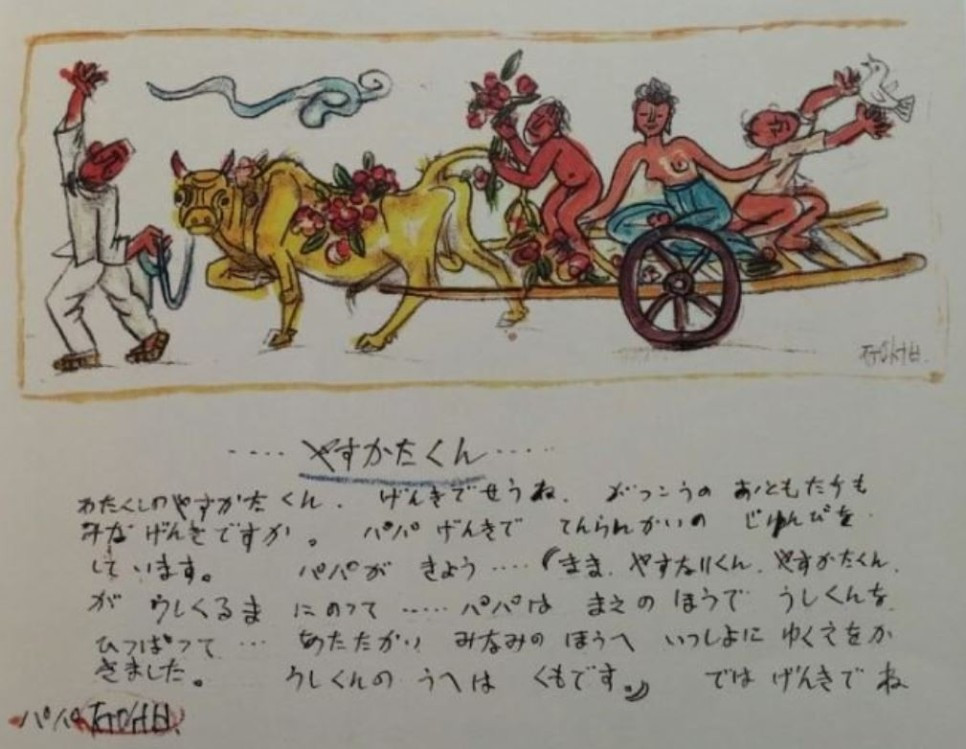 ㅈㅜㅇㅅㅓㅂ
····やすかたくん····
わたくしのやすかたくん。げんきでせうね。がっこうのおともたちも
みなげんきですか。パパげんきでてんらんかいのじゅんびを
しています。パパがきょう····(まま、やすなりくん、やすかたくん、
がうしくるまにのって·····パパはまえのほうでうしくんを
ひっぱって···あたたかいみなみのほうへいっしよにゆくえをか
きました。うしくんのうへはくもです。)ではげんきでね
パパㅈㅜㅇㅅㅓㅂ